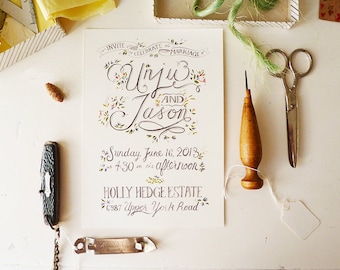 INVITE YOU TO
CELEBRATE OUR MARRIAGE
Unju
AND
Jason
Sunday, June 16, 2013
4:30 in the afternoon
HOLLY HEDGE ESTATE
6987 Upper York Road